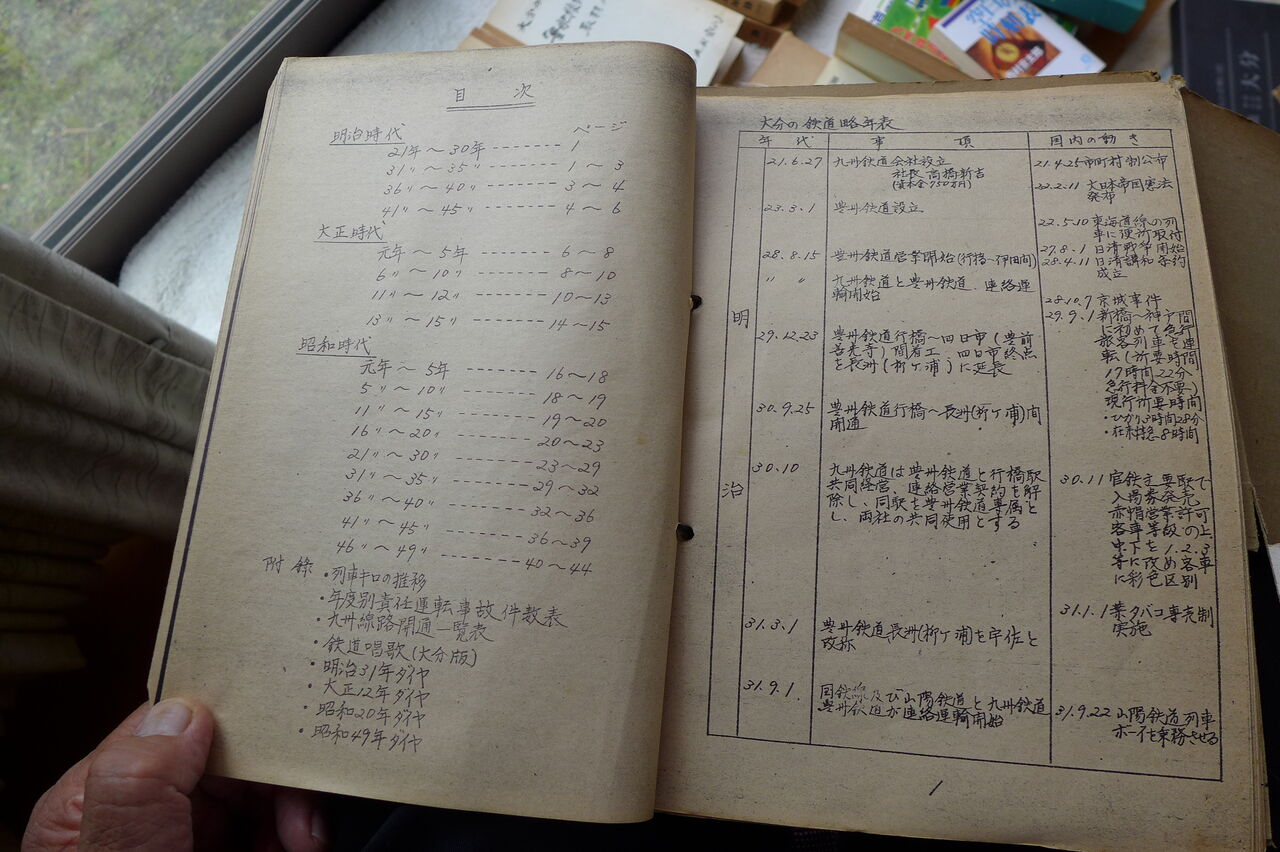 目 次
ページ
明治時代
21年～30年 ------- 1
31〃～35〃 ------- 1～3
36〃～40〃 ------- 3～4
41〃～45〃 ------- 4～6
大正時代
元年～5年 ------- 6～8
6〃～10〃 ------- 8～10
11〃～12〃 ------- 10～13
13〃～15〃 ------- 14～15
昭和時代
元年～5年 ------- 16～18
5〃～10〃 ------- 18～19
11〃～15〃 ------- 19～20
16〃～20〃 ------- 20～23
21〃～30〃 ------- 23～29
31〃～35〃 ------- 29～32
36〃～40〃 ------- 32～36
41〃～45〃 ------- 36～39
46〃～49〃 ------- 40～44
附録
・列車キロの推移
・年度別責任運転事故件数表
・九州線路開通一覧表
・鉄道唱歌(大分版)
・明治31年ダイヤ
・大正12年ダイヤ
・昭和20年ダイヤ
・昭和49年ダイヤ
大分の鉄道略年表
年 代 事 項 国内の動き
明治
21.6.27 九州鉄道会社設立
社長 高橋新吉
(資本金750万円)
23.3.1 豊州鉄道設立
28.8.15 豊州鉄道営業開始(行橋～伊田間)
〃 〃 九州鉄道と豊州鉄道、連絡運
輸開始
29.12.23 豊州鉄道行橋～四日市(豊前
善光寺)間着工 四日市終点
を長洲(柳ヶ浦)に延長
30.9.25 豊州鉄道行橋～長洲(柳ヶ浦)間
開通
30.10 九州鉄道は豊州鉄道と行橋駅
共同経営、連絡営業契約を解
除し、同駅を豊州鉄道専属と
し、両社の共同使用とする
31.3.1 豊州鉄道長洲(柳ヶ浦)を宇佐と
改称
31.9.1. 国鉄線及び山陽鉄道と九州鉄道
豊州鉄道が連絡運輸開始
21.4.25 市町村制公布
22.2.11 大日本帝国憲法
発布
22.5.10 東海道線の列
車に便所取付
27.8.1 日清戦争開始
28.4.11 日清講和条約
成立
28.10.7 京城事件
29.9.1 新橋～神戸間
に初めて急行
旅客列車を運
転(所要時間
17時間22分
急行料金不要)
現行所要時間
・ひかり3時間28分
・在来特急8時間
30.11 官鉄主要駅で
入場券発売
赤帽営業許可
客車等級の上
中下を1.2.3
等に改め客車
に彩色区別
31.1.1 葉タバコ専売制
実施
31.9.22 山陽鉄道列車
ボーイを乗務させる
1
大分